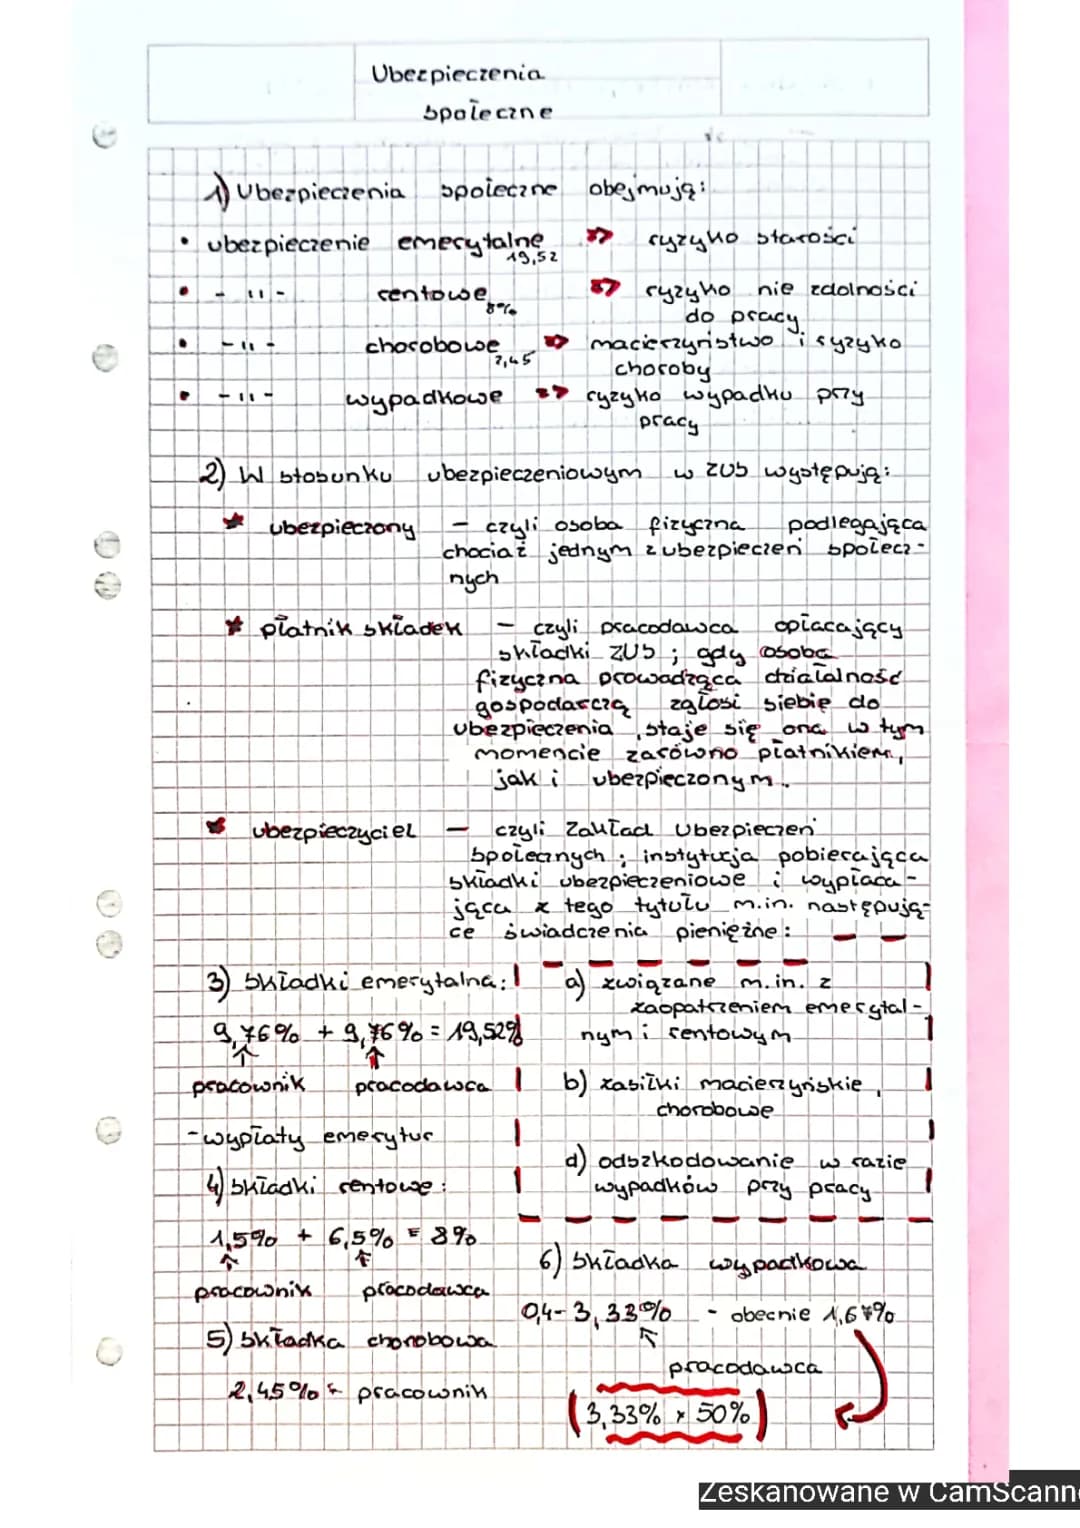 Ubezpieczenia
społeczne
1) Ubezpieczenia społeczne obejmują:
• ubezpieczenie emerytalne ⇒ ryzyko starości
19,52
• - 11 - rentowe ⇒ ryzyko nie zdolności
8% do pracy
• - 11 - chorobowe ⇒ macierzyństwo i ryzyko
2,45 choroby
• - 11 - wypadkowe ⇒ ryzyko wypadku przy
pracy
2) W stosunku ubezpieczeniowym w ZUS występują:
* ubezpieczony - czyli osoba fizyczna podlegająca
chociaż jednym z ubezpieczeń społecz-
nych
* płatnik składek - czyli pracodawca opłacający
składki ZUS ; gdy osoba
fizyczna prowadząca działalność
gospodarczą zgłosi siebie do
ubezpieczenia, staje się ona w tym
momencie zarówno płatnikiem,
jak i ubezpieczonym.
* ubezpieczyciel - czyli Zakład Ubezpieczeń
Społecznych ; instytucja pobierająca
składki ubezpieczeniowe i wypłaca-
jąca z tego tytułu m.in. następują-
ce świadczenia pieniężne:
a) związane m.in. z
zaopatrzeniem emerytal-
nym i rentowym
b) zasiłki macierzyńskie,
chorobowe
d) odszkodowanie w razie
wypadków przy pracy
3) Składki emerytalna:
9,76% + 9,76% = 19,52%
↑ ↑
pracownik pracodawca
- wypłaty emerytur
4) Składki rentowe:
1,5% + 6,5% = 8%
↑ ↑
pracownik pracodawca
5) Składka chorobowa
2,45% ← pracownik
6) Składka wypadkowa
0,4- 3,33% - obecnie 1,67%
↖
pracodawca
(3,33% × 50%)
Zeskanowane w CamScanne